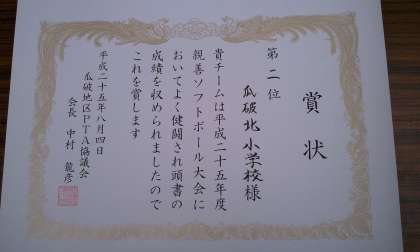 賞状
第二位
瓜破北小学校様
貴チームは平成二十五年度
親善ソフトボール大会に
おいてよく健闘され頭書の
成績を収められましたので
これを賞します
平成二十五年八月四日
瓜破地区PTA協議会
会長 中村 龍彦